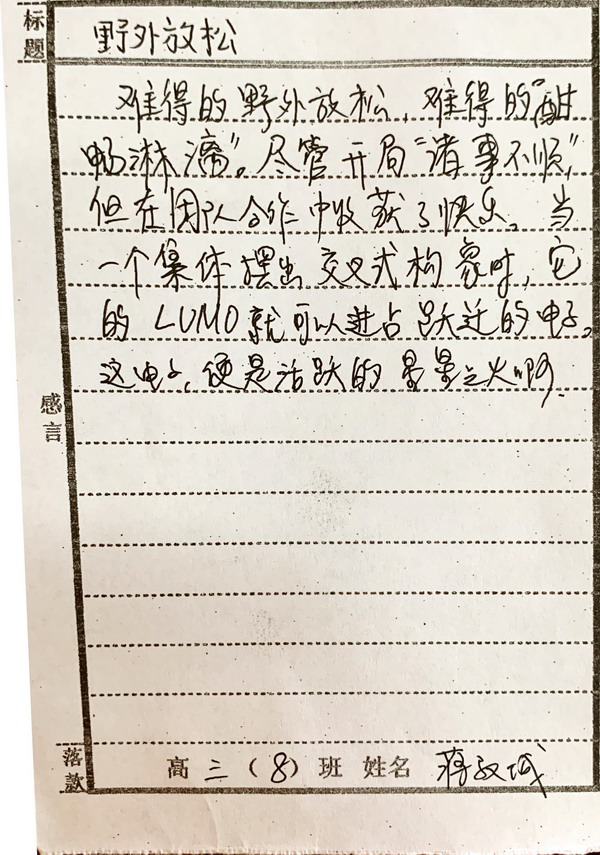 标题
野外放松
难得的野外放松，难得的“酣
畅淋漓”。尽管开局“诸事不顺”，
但在团队合作中收获了快乐。当
一个集体摆出交叉式构象时，它
的LUMO就可以进占跃迁的电子。
这电子，便是活跃的星星之火啊。
感言
落款
高三（8）班 姓名 蒋